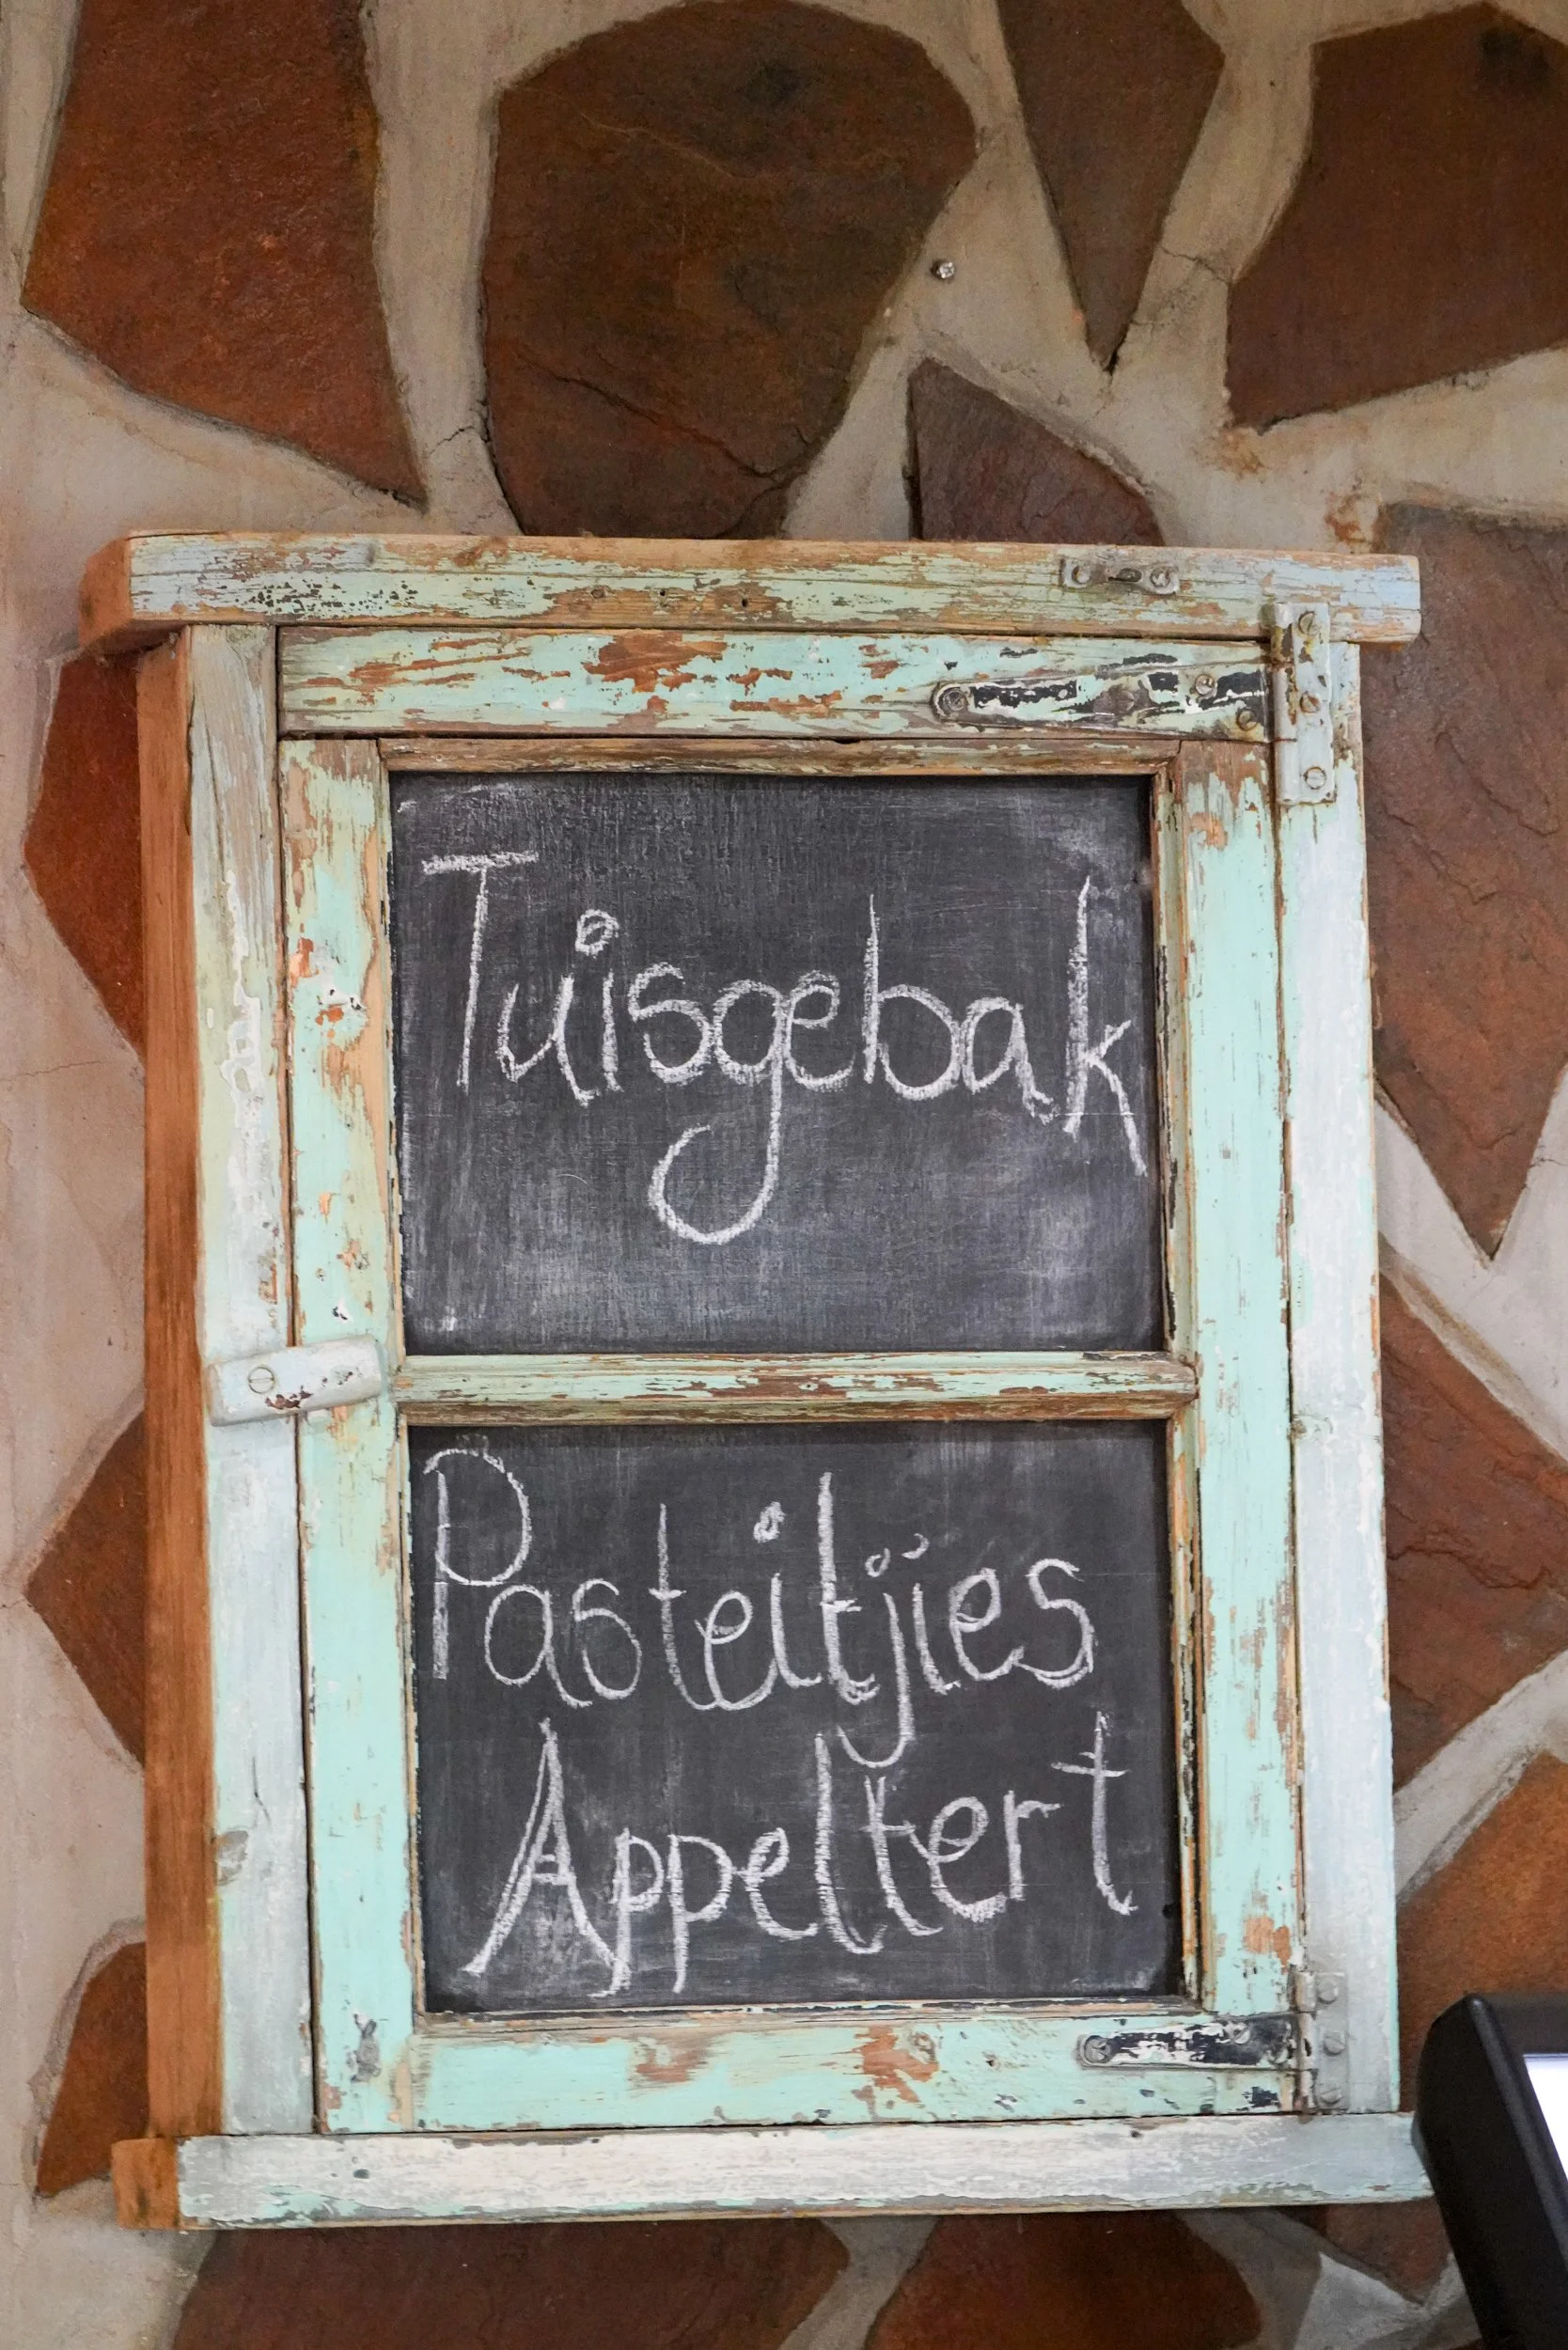 Tuisgebak
Pasteitjies
Appeltert